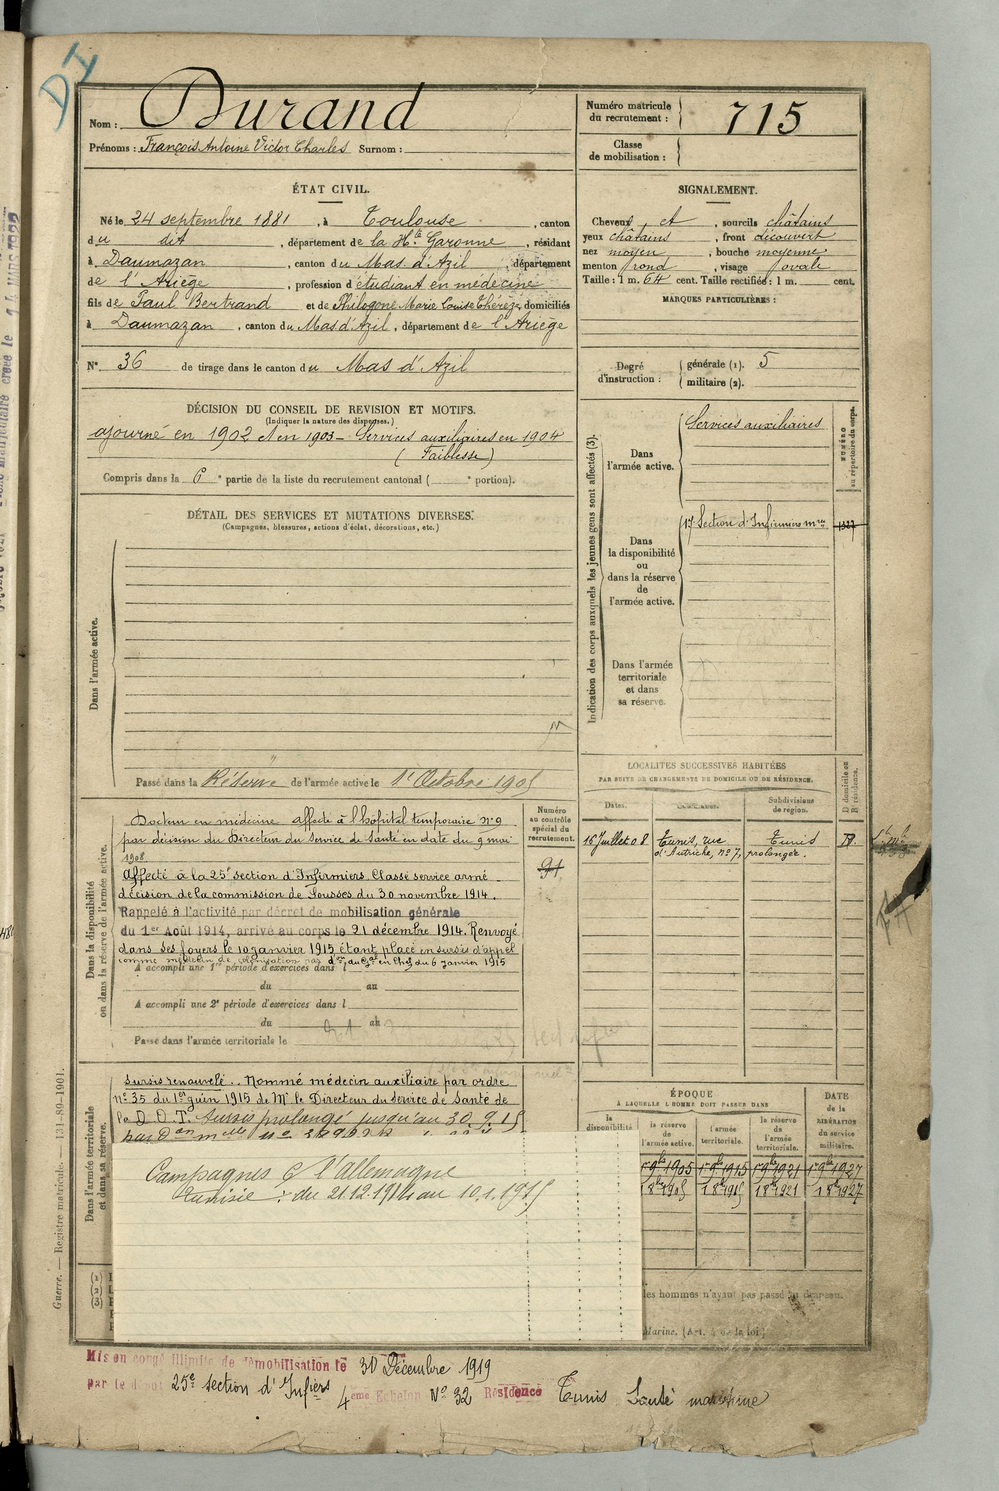 DI
Nom : Durand
Prénoms : François Antoine Victor Charles Surnom :
Numéro matricule du recrutement : 715
Classe de mobilisation :
ÉTAT CIVIL.
Né le 24 septembre 1881, à Toulouse, canton
du dit, département de la Hte Garonne, résidant
à Daumazan, canton du Mas d'Azil, département
de l'Ariège, profession d'étudiant en médecine
fils de Paul Bertrand et de Philogone Marie Louise Thérèze, domiciliés
à Daumazan, canton du Mas d'Azil, département de l'Ariège
N° 36 de tirage dans le canton du Mas d'Azil
SIGNALEMENT.
Cheveux et, sourcils châtains
yeux châtains, front découvert
nez moyen, bouche moyenne
menton rond, visage ovale
Taille : 1 m. 64 cent. Taille rectifiée : 1 m. cent.
MARQUES PARTICULIÈRES :
Degré d'instruction : générale (1). 5
militaire (2).
DÉCISION DU CONSEIL DE REVISION ET MOTIFS.
(Indiquer la nature des dispenses.)
ajourné en 1902 et en 1903 - Services auxiliaires en 1904
(Faiblesse)
Compris dans la 6e partie de la liste du recrutement cantonal ( e portion).
DÉTAIL DES SERVICES ET MUTATIONS DIVERSES.
(Campagnes, blessures, actions d'éclat, décorations, etc.)
Dans l'armée active.
Passé dans la Réserve de l'armée active le 1er Octobre 1905
Indication des corps auxquels les jeunes gens sont affectés (3).
NUMÉRO au répertoire du corps.
Dans l'armée active.
Services auxiliaires
Dans la disponibilité ou dans la réserve de l'armée active.
17 Section d'Infirmiers mres 1327
Dans l'armée territoriale et dans sa réserve.
LOCALITÉS SUCCESSIVES HABITÉES
PAR SUITE DE CHANGEMENTS DE DOMICILE OU DE RÉSIDENCE.
D domicile ou R résidence.
Dates. Communes. Subdivisions de région.
16 Juillet 08 Tunis, rue Tunis R.
d'Autriche, n° 7, prolongée.
Dans la disponibilité ou dans la réserve de l'armée active.
Numéro au contrôle spécial du recrutement.
91
Docteur en médecine affecté à l'hôpital temporaire n° 9
par décision du Directeur du Service de Santé en date du 9 mai
1908
Affecté à la 25e section d'Infirmiers. Classé service armé
décision de la commission de Sousses du 30 novembre 1914.
Rappelé à l'activité par décret de mobilisation générale
du 1er Août 1914, arrivé au corps le 21 décembre 1914. Renvoyé
dans ses foyers le 10 janvier 1915 étant placé en sursis d'appel
comme médecin de colonisation par don du Gal en Chef du 6 janvier 1915
A accompli une 1re période d'exercices dans l
du au
A accompli une 2e période d'exercices dans l
du au
Passé dans l'armée territoriale le
Dans l'armée territoriale et dans sa réserve.
sursis renouvelé. Nommé médecin auxiliaire par ordre
n° 35 du 1er juin 1915 de Mr le Directeur du service de santé de
la D.O.T. Sursis prolongé jusqu'au 30.9.15
par don mlle n°
Campagnes C l'allemagne
Tunisie : du 21.12.1914 au 10.1.1915
ÉPOQUE
À LAQUELLE L'HOMME DOIT PASSER DANS
DATE de la LIBÉRATION du service militaire.
la disponibilité
la réserve de l'armée active.
l'armée territoriale.
la réserve de l'armée territoriale.
1er 9bre 1905 1er 9bre 1915 1er 9bre 1921 1er 9bre 1927
1 8bre 1905 1 8bre 1915 1 8bre 1921 1 8bre 1927
les hommes n'ayant pas passé au drapeau.
Marine. (Art. 4 de la loi.)
(1)
(2)
(3)
Guerre. — Registre matricule. — 131-89-1901.
Mis en congé illimité de démobilisation le 30 Décembre 1919
par le dépôt 25e section d'Infiers 4eme Echelon N° 32 Résidence Tunis Santé maritime